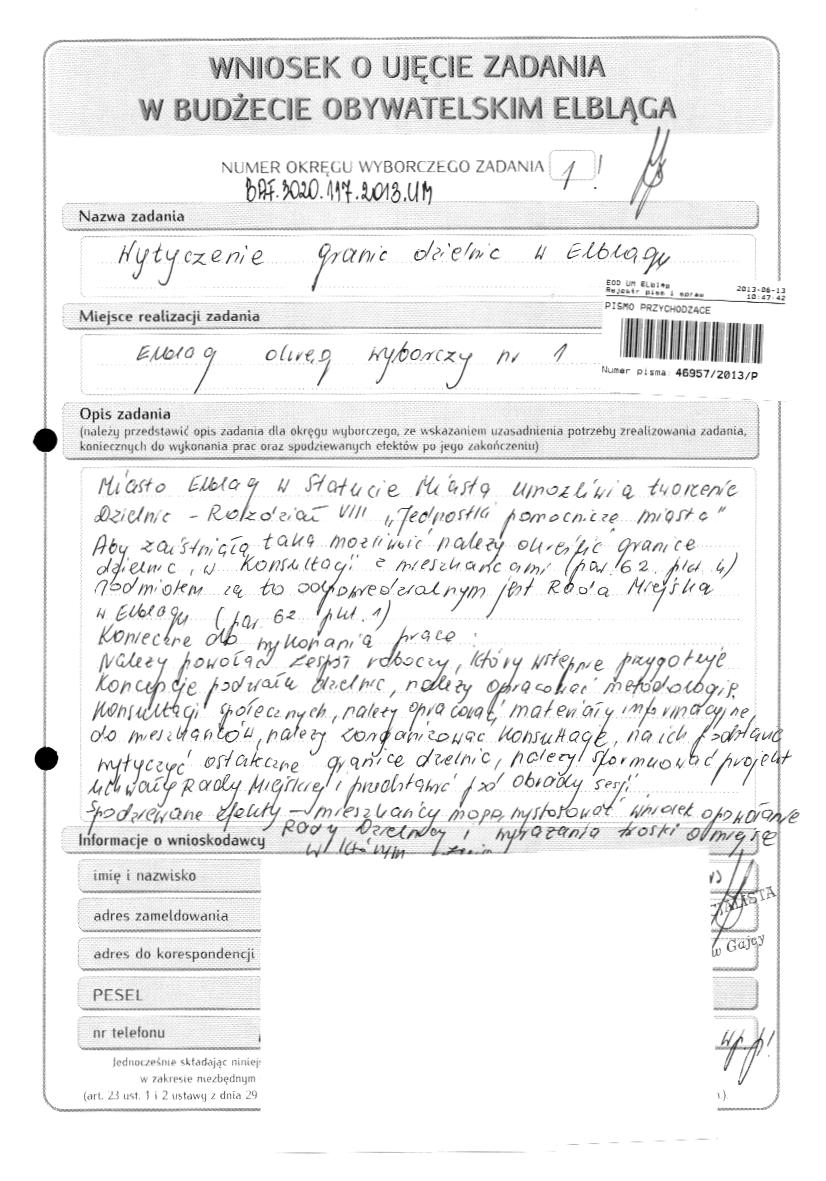 WNIOSEK O UJĘCIE ZADANIA
W BUDŻECIE OBYWATELSKIM ELBLĄGA
NUMER OKRĘGU WYBORCZEGO ZADANIA 1!
BAF.3020.117.2013.UM
Nazwa zadania
Wytyczenie granic dzielnic w Elblągu
EOD UM Elbląg 2013-06-13
Rejestr pism i spraw 10:47:42
PISMO PRZYCHODZĄCE
Numer pisma: 46957/2013/P
Miejsce realizacji zadania
Elbląg okręg wyborczy nr 1
Opis zadania
(należy przedstawić opis zadania dla okręgu wyborczego, ze wskazaniem uzasadnienia potrzeby zrealizowania zadania,
koniecznych do wykonania prac oraz spodziewanych efektów po jego zakończeniu)
Miasto Elbląg w Statucie Miasta umożliwia tworzenie
Dzielnic – Rozdział VIII „Jednostki pomocnicze miasta"
Aby zaistniała taka możliwość należy określić granice
dzielnic, w konsultacji z mieszkańcami (par. 62. pkt. 4)
Podmiotem za to odpowiedzialnym jest Rada Miejska
w Elblągu (par. 62 pkt. 1)
Konieczne do wykonania prace:
Należy powołać zespół roboczy, który wstępnie przygotuje
koncepcję podziału dzielnic, należy opracować metodologię
konsultacji społecznych, należy opracować materiały informacyjne
do mieszkańców, należy zorganizować konsultacje, na ich podstawie
wytyczyć ostateczne granice dzielnic, należy sformułować projekt
uchwały Rady Miejskiej i przedstawić pod obrady sesji.
Spodziewane efekty – mieszkańcy mogą wystosować wniosek o powołanie
Rady Dzielnicy i wyrażania troski o miejsce
w którym
Informacje o wnioskodawcy
imię i nazwisko
adres zameldowania
adres do korespondencji
w Gajcy
PESEL
nr telefonu
wp.pl
Jednocześnie składając niniej
w zakresie niezbędnym
(art. 23 ust. 1 i 2 ustawy z dnia 29